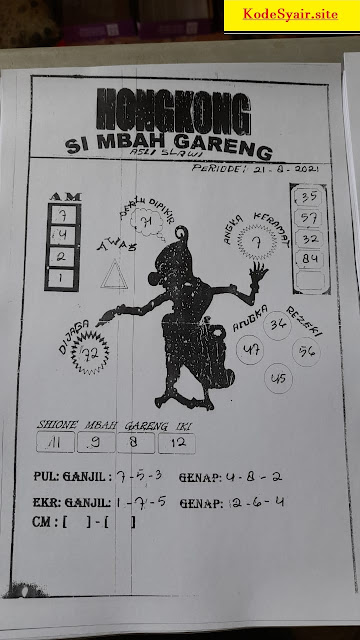 KodeSyair.site
HONGKONG
SI MBAH GARENG
ASLI SLAWI
PERIODE: 21-8-2021
AM
7
4
2
1
DIPIKIR
71
AWAS
ANGKA KERAMAT
7
35
57
32
84
DIJAGA
72
ANGKA REZEKI
36
47
56
45
SHIONE MBAH GARENG IKI
11 9 8 12
PUL: GANJIL: 7-5-3 GENAP: 4-8-2
EKR: GANJIL: 1-7-5 GENAP: 2-6-4
CM : [ ] - [ ]